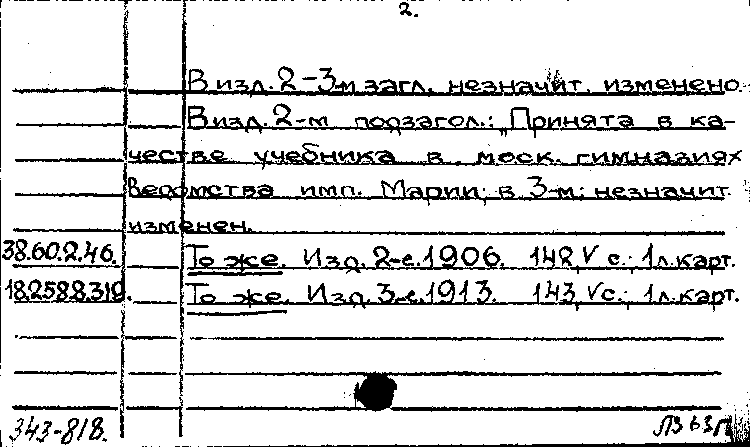 2.
В изд. 2-3-м загл. незначит. изменено.
В изд. 2-м подзагол.: „Принята в ка-
честве учебника в моск. гимназиях
Ведомства имп. Марии; в 3-м: незначит.
изменен.
38.60.2.46. То же. Изд. 2-е. 1906. 142, V с.; 1 л. карт.
18.258.8.319. То же. Изд. 3-е. 1913. 143, V с.; 1 л. карт.
343-81В.